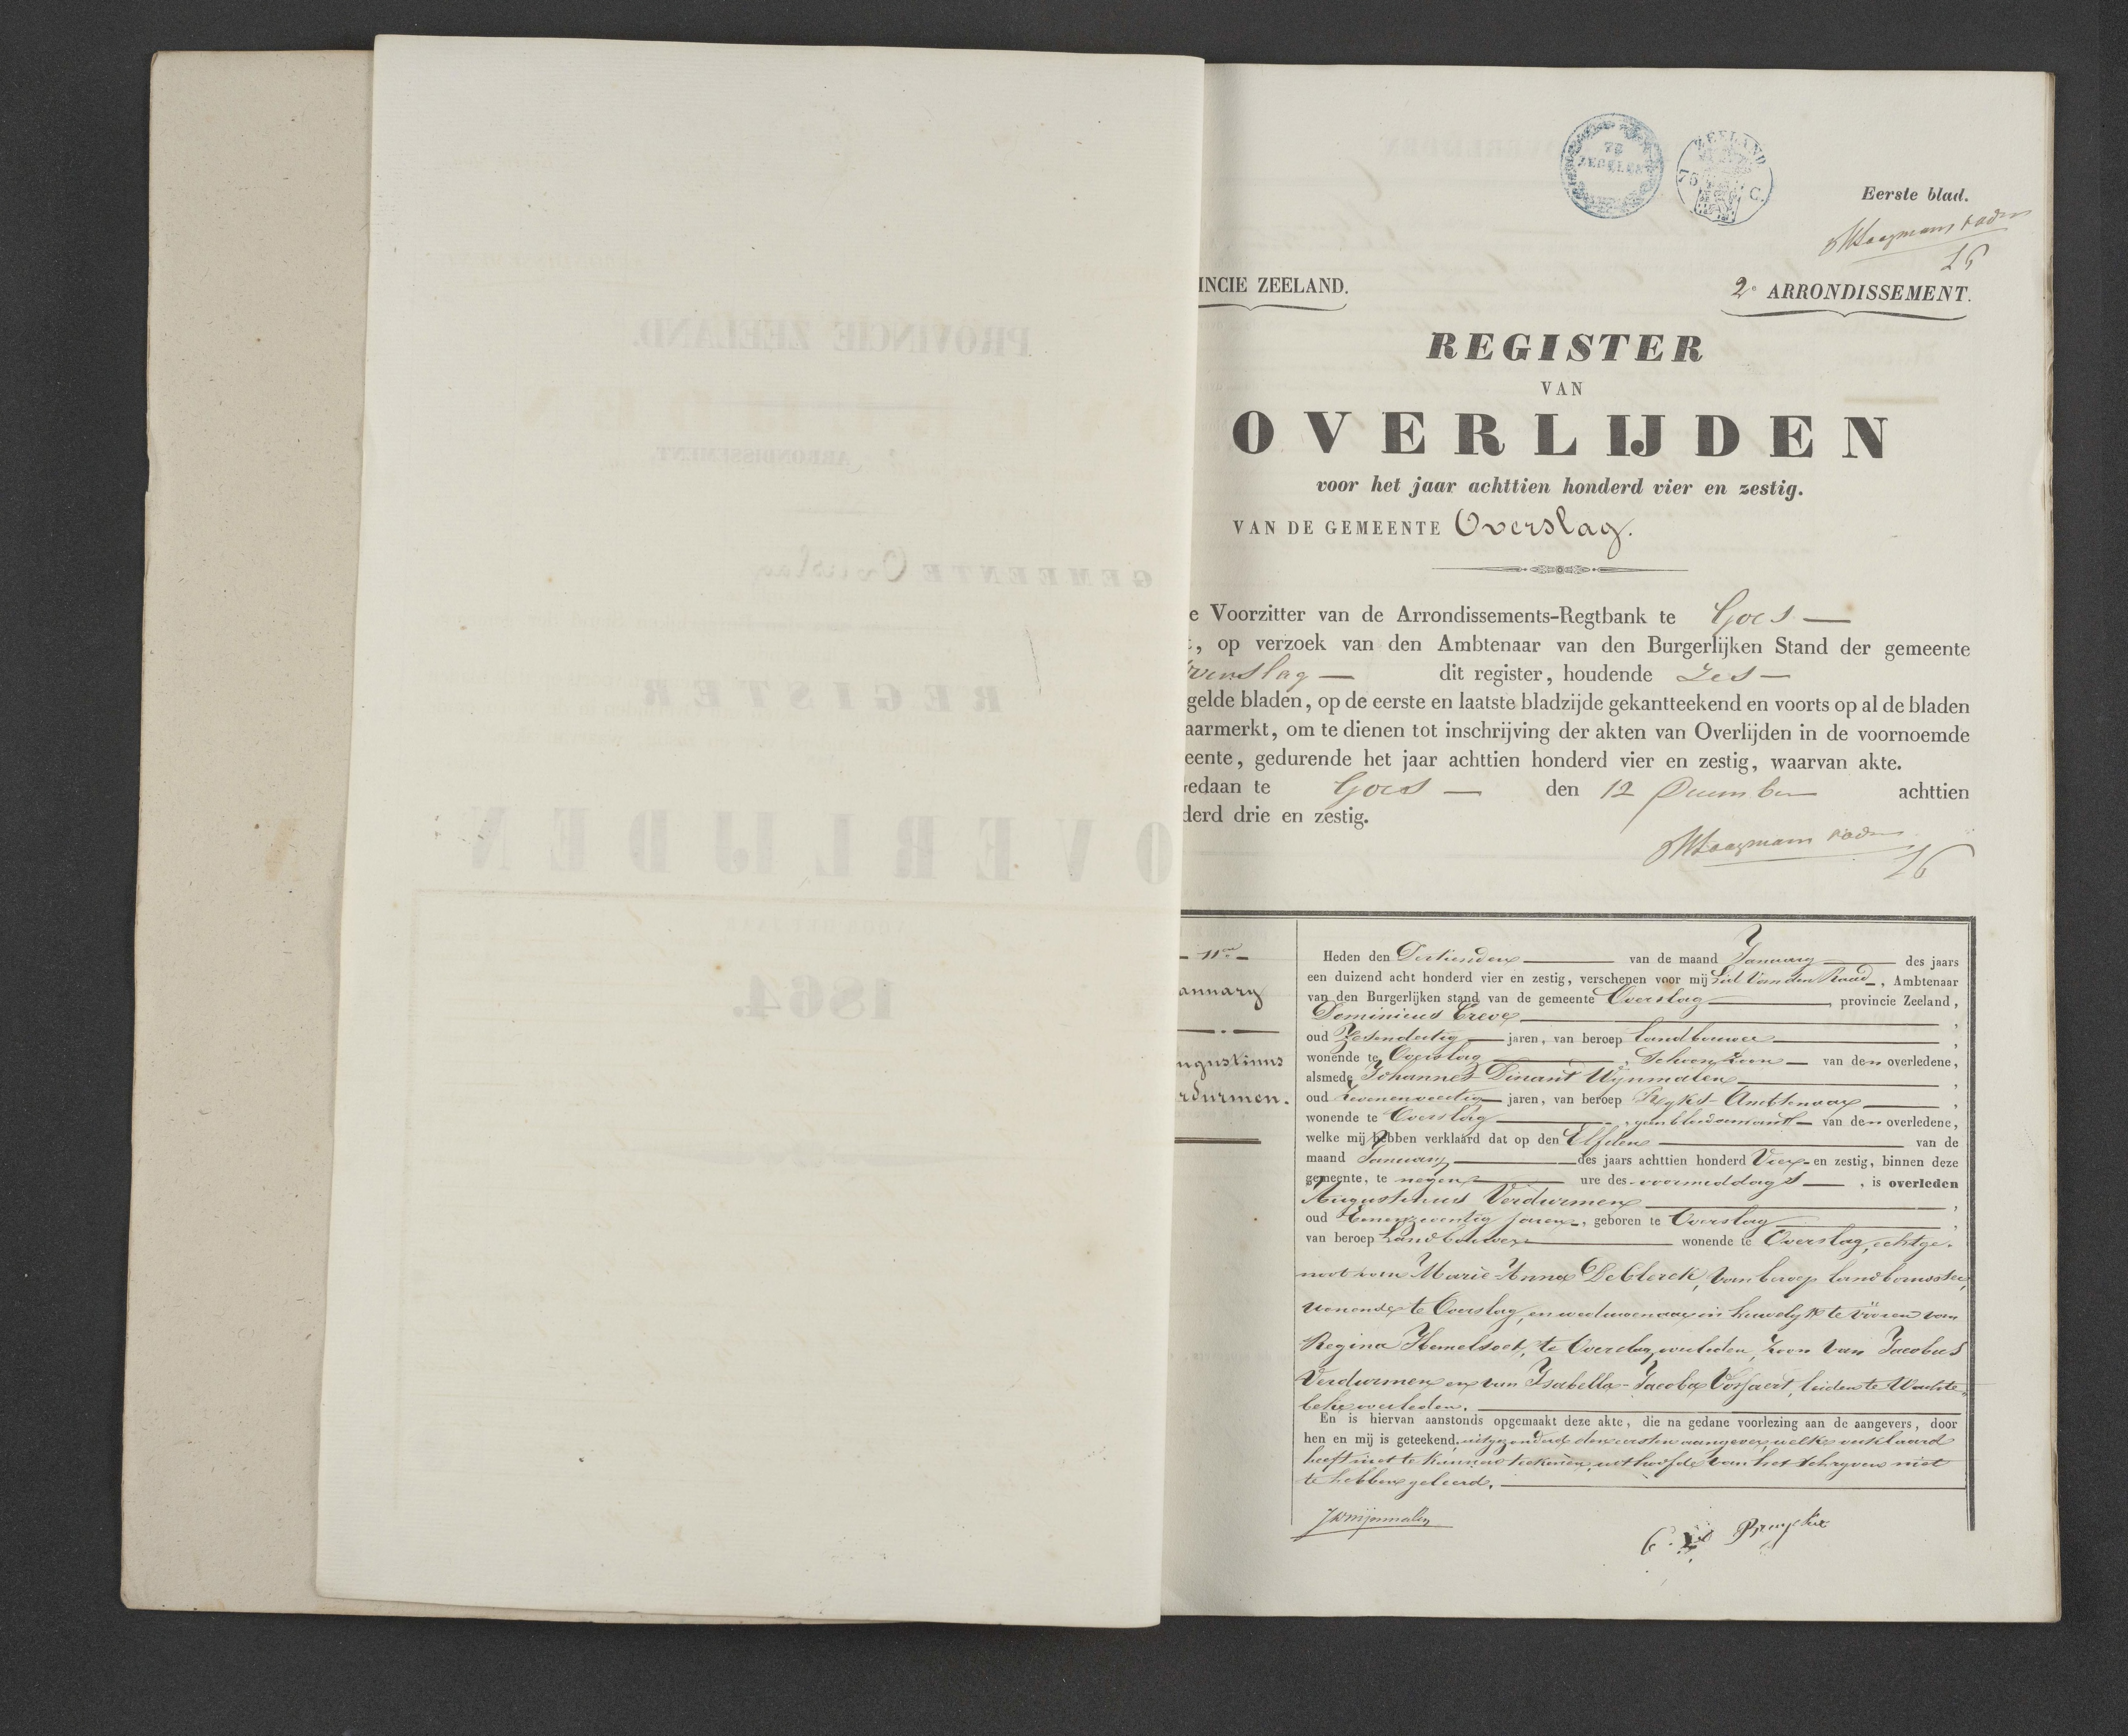 72
ZEGELEN
ZEELAND
75 C.
Eerste blad.
INCIE ZEELAND.
2e ARRONDISSEMENT.
REGISTER
VAN
OVERLIJDEN
voor het jaar achttien honderd vier en zestig.
VAN DE GEMEENTE Overslag.
e Voorzitter van de Arrondissements-Regtbank te Goes —
, op verzoek van den Ambtenaar van den Burgerlijken Stand der gemeente
verslag — dit register, houdende Zes —
gelde bladen, op de eerste en laatste bladzijde gekantteekend en voorts op al de bladen
aarmerkt, om te dienen tot inschrijving der akten van Overlijden in de voornoemde
eente, gedurende het jaar achttien honderd vier en zestig, waarvan akte.
edaan te Goes — den 12 December achttien
derd drie en zestig.
anuary
ugustinus
rdurmen.
Heden den Dertienden van de maand January des jaars
een duizend acht honderd vier en zestig, verschenen voor mij Lid van den Raad, Ambtenaar
van den Burgerlijken stand van de gemeente Overslag, provincie Zeeland,
Dominicus Creve,
oud Zesendertig jaren, van beroep Landbouwer,
wonende te Overslag, Schoonzoon van den overledene,
alsmede Johannes Dinant Wijnmalen,
oud Zevenenveertig jaren, van beroep Ryks-Ambtenaar,
wonende te Overslag, geen bloedverwant van den overledene,
welke mij hebben verklaard dat op den Elfden van de
maand January des jaars achttien honderd Vier en zestig, binnen deze
gemeente, te negen ure des voormiddags, is overleden
Augustinus Verdurmen,
oud Eenenzeventig jaren, geboren te Overslag,
van beroep Landbouwer wonende te Overslag, echtge-
noot van Marie-Anna De Clerck, van beroep landbouwster,
wonende te Overslag, en weduwenaar in huwelyk te vooren van
Regina Hemelsoet, te Overslag overleden, zoon van Jacobus
Verdurmen en van Isabella-Jacoba Vosfaert, beiden te Wachte-
beke overleden.
En is hiervan aanstonds opgemaakt deze akte, die na gedane voorlezing aan de aangevers, door
hen en mij is geteekend, uitgezonderd den eersten aangever, welke verklaard
heeft niet te kunnen teekenen, uit hoofde van het schryven niet
te hebben geleerd.
JDWijnmalen